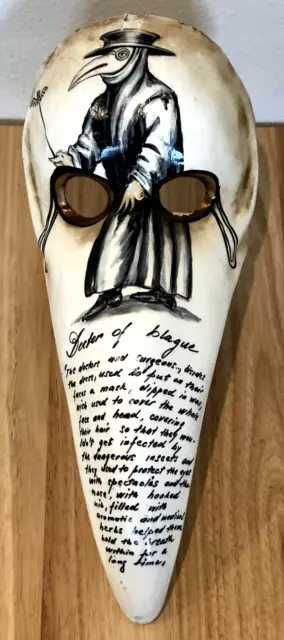 Doctor of blague
The doctors and surgeons, besides
the dress, used to put on their
faces a mask, dipped in wax,
wich used to cover the whole
face and head, covering
their hair so that they woul-
ldn't get infected by
the dangerous insects and
they used to protect the eyes
with spectacles and the
nose, with hooked
nib, filled with
aromatic and medical
herbs helped them
hold the breath
within for a
long time.